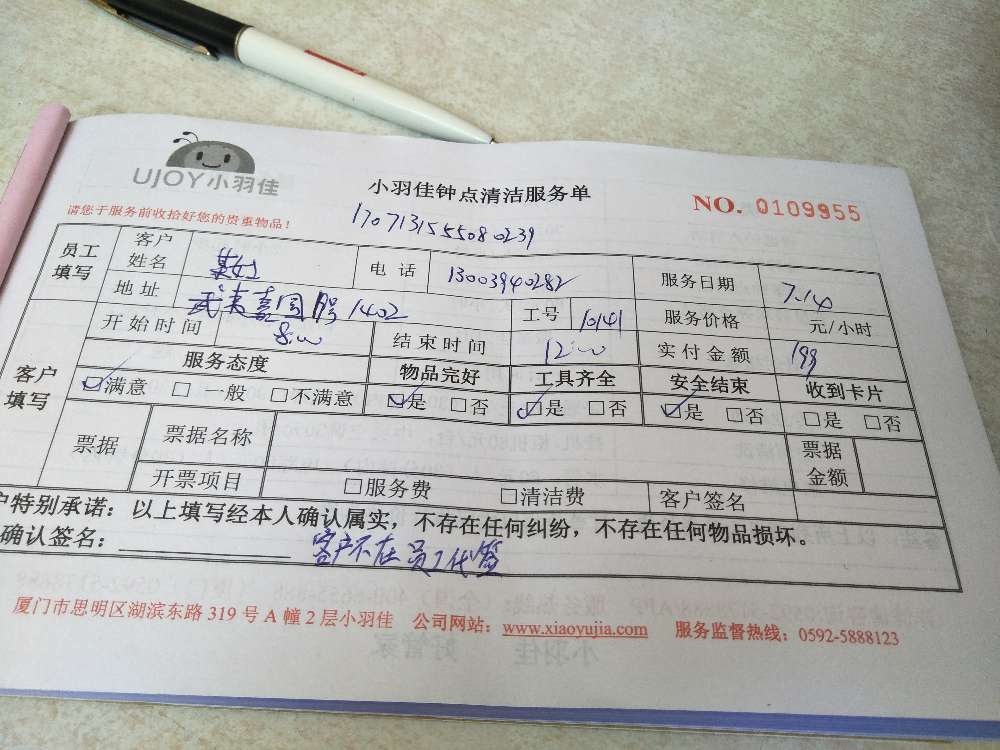 UJOY小羽佳
小羽佳钟点清洁服务单
NO. 0109955
请您于服务前收拾好您的贵重物品！
170713155508 0239
员工填写 客户姓名 电话 13003940282 服务日期 7.14
地址 1402 工号 10141 服务价格 元/小时
客户填写 开始时间 8:00 结束时间 12:00 实付金额 199
服务态度 物品完好 工具齐全 安全结束 收到卡片
☑满意 □一般 □不满意 ☑是 □否 ☑是 □否 ☑是 □否 □是 □否
票据 票据名称 票据金额
开票项目 □服务费 □清洁费 客户签名
户特别承诺：以上填写经本人确认属实，不存在任何纠纷，不存在任何物品损坏。
确认签名： 客户不在 员工代签
厦门市思明区湖滨东路 319 号 A 幢 2 层小羽佳 公司网站：www.xiaoyujia.com 服务监督热线：0592-5888123